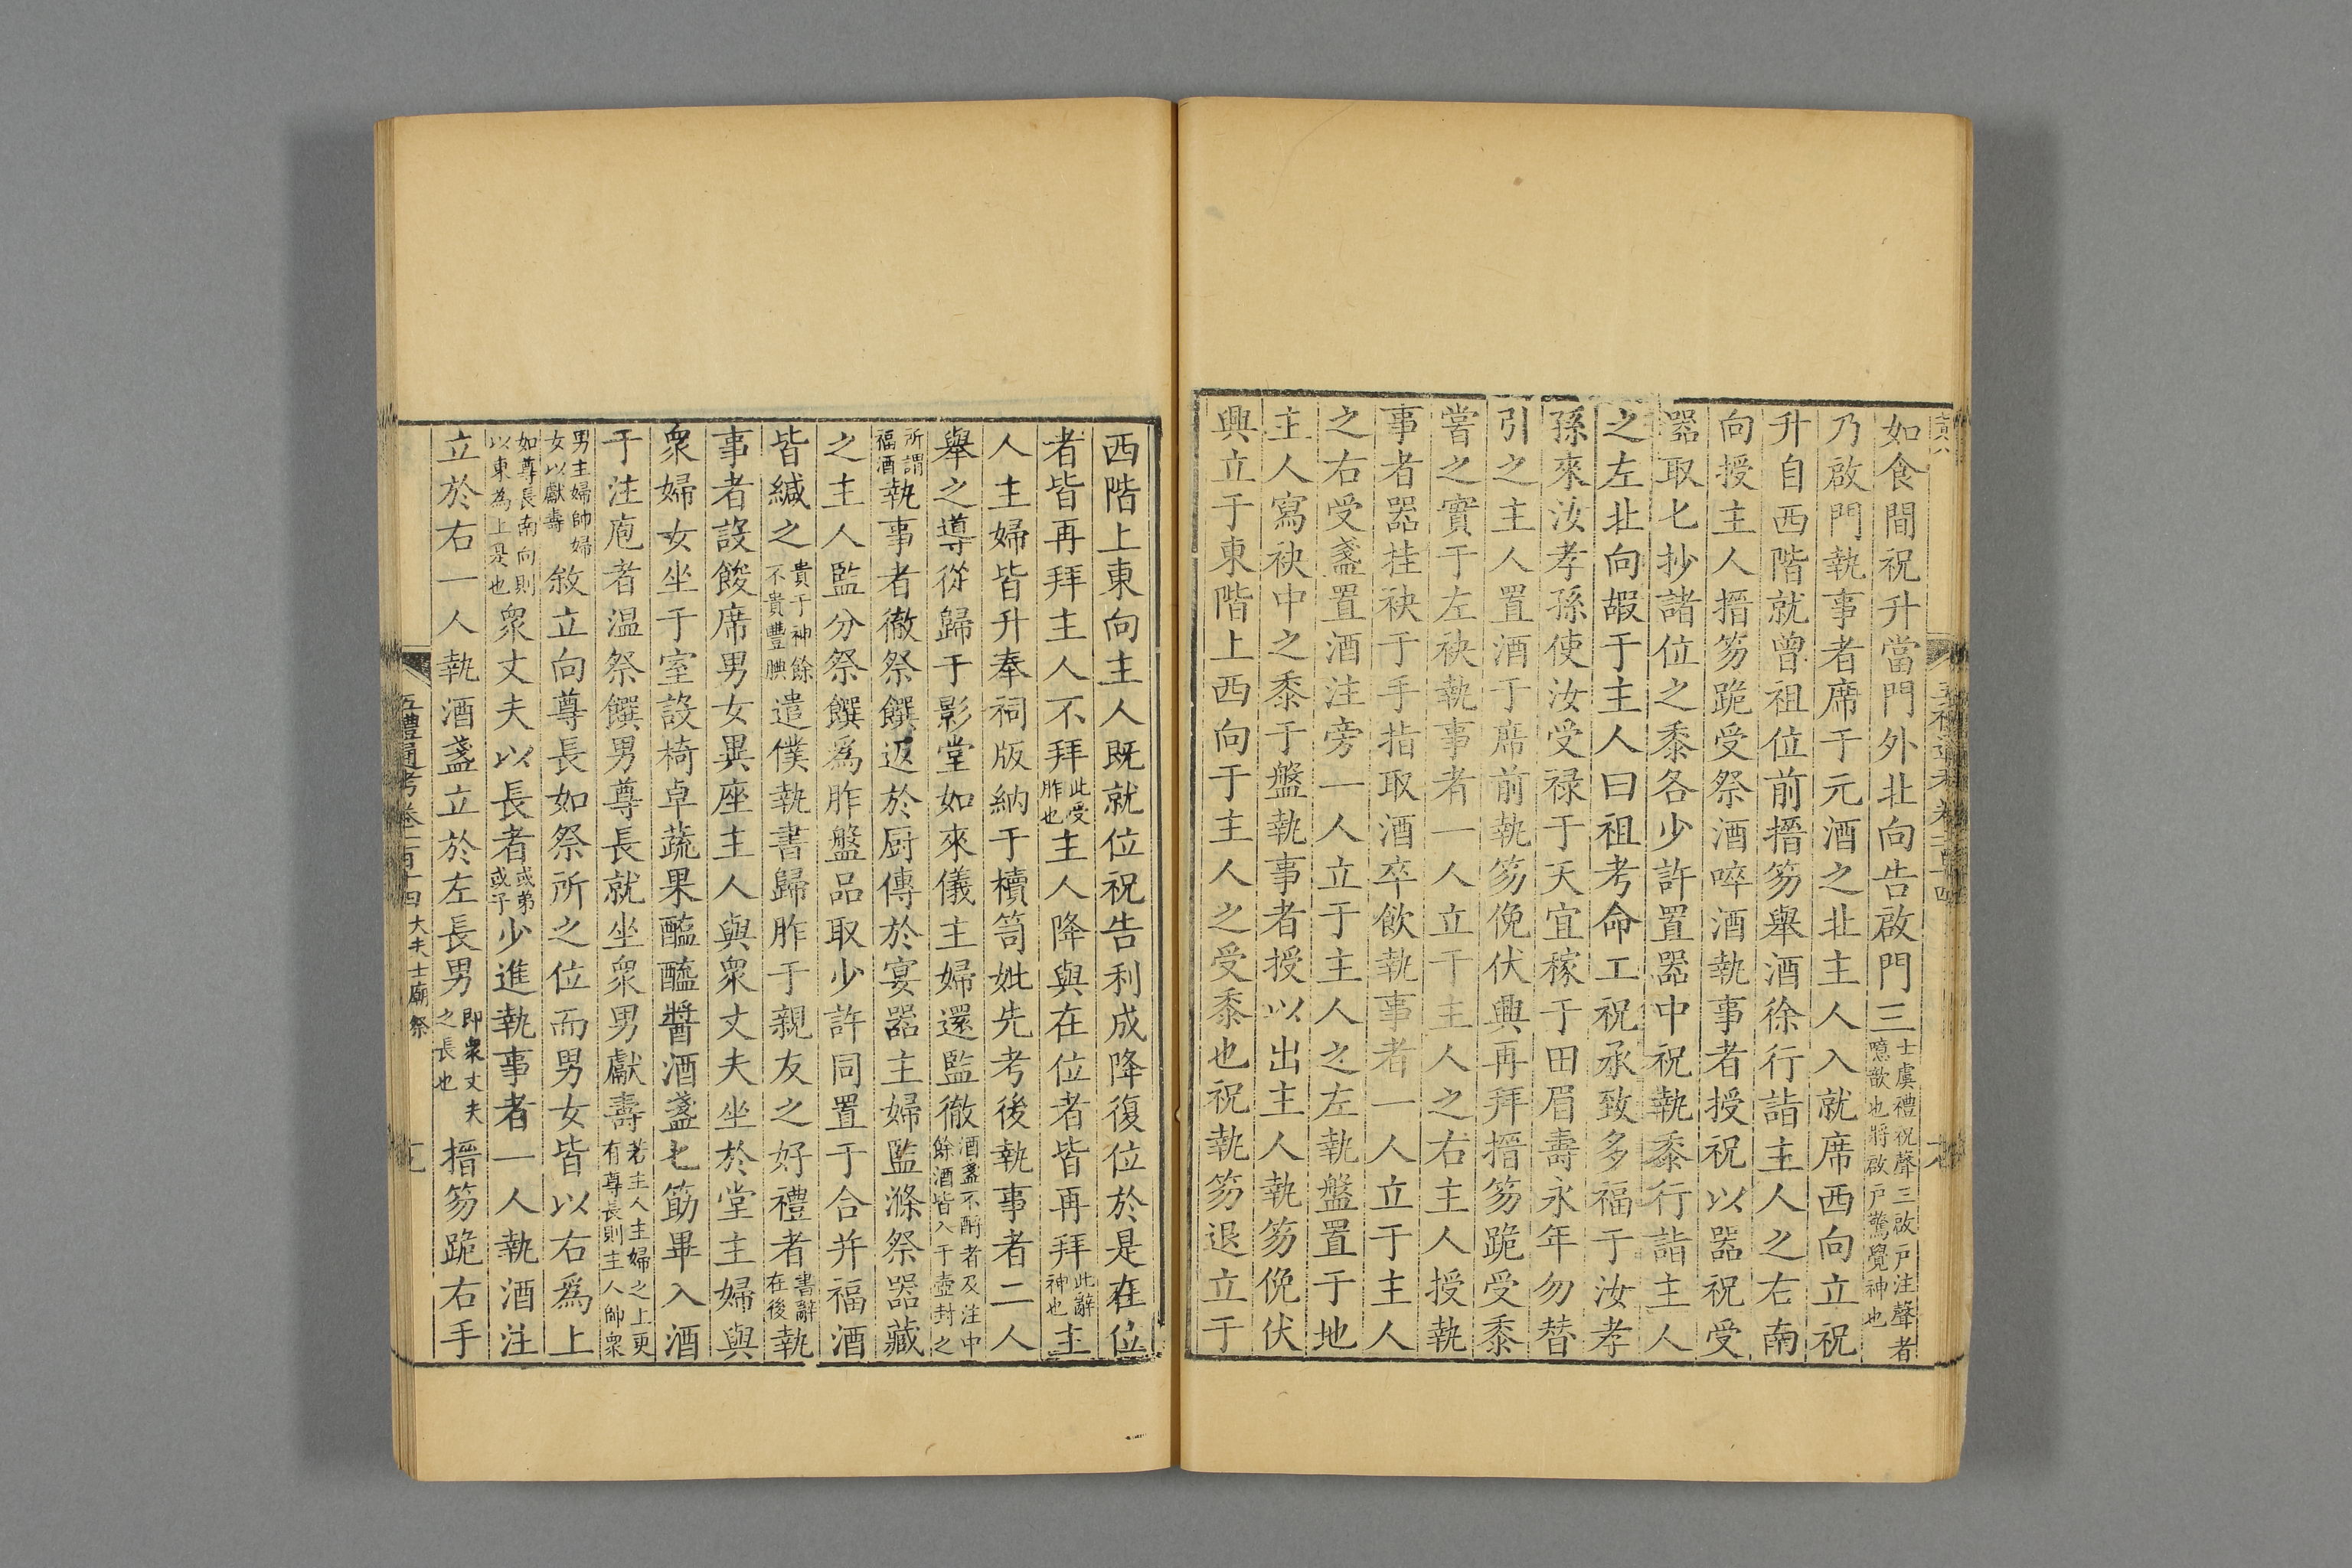 如食間祝升當門外北向告啟門三士虞禮祝聲三啟戶注聲者噫歆也將啟戶驚覺神也
乃啟門執事者席于元酒之北主人入就席西向立祝
升自西階就曾祖位前搢笏舉酒徐行詣主人之右南
向授主人搢笏跪受祭酒啐酒執事者授祝以器祝受
器取匕抄諸位之黍各少許置器中祝執黍行詣主人
之左北向嘏于主人曰祖考命工祝承致多福于汝孝
孫來汝孝孫使汝受禄于天宜稼于田眉壽永年勿替
引之主人置酒于席前執笏俛伏興再拜搢笏跪受黍
嘗之實于左袂執事者一人立于主人之右主人授執
事者器挂袂于手指取酒卒飲執事者一人立于主人
之右受盞置酒注旁一人立于主人之左執盤置于地
主人寫袂中之黍于盤執事者授以出主人執笏俛伏
興立于東階上西向于主人之受黍也祝執笏退立于
西階上東向主人既就位祝告利成降復位於是在位
者皆再拜主人不拜此受胙也主人降與在位者皆再拜此辭神也主
人主婦皆升奉祠版納于櫝笥妣先考後執事者二人
舉之導從歸于影堂如來儀主婦還監徹酒盞不酹者及注中餘酒皆入于壺封之
所謂福酒執事者徹祭饌返於厨傳於宴器主婦監滌祭器藏
之主人監分祭饌爲胙盤品取少許同置于合并福酒
皆緘之貴于神餘不貴豐腆遣僕執書歸胙于親友之好禮者書辭在後執
事者設餕席男女異座主人與衆丈夫坐於堂主婦與
衆婦女坐于室設椅卓蔬果醯醢醬酒盞匕筯畢入酒
于注庖者温祭饌男尊長就坐衆男獻壽若主人主婦之上更有尊長則主人帥衆
男主婦帥婦女以獻壽敘立向尊長如祭所之位而男女皆以右爲上
如尊長南向則以東為上是也衆丈夫以長者或弟或子少進執事者一人執酒注
立於右一人執酒盞立於左長男即衆丈夫之長也搢笏跪右手
五禮通考卷一百十四 大夫士廟祭